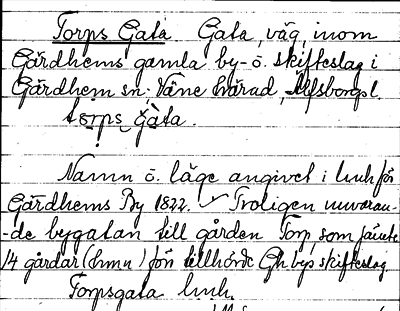 Torps Gata Gata, väg, inom
Gärdhems gamla by- o. skifteslag i
Gärdhem sn; Väne härad, Älfsborgs l.
torps gata.
Namn o. läge angivet i lmh för
Gärdhems By 1822. Troligen nuvaran-
-de bygatan till gården Torp, som jämte
14 gårdar (hmn) för tillhörde Gh bys skifteslag
Torpsgata lmh.